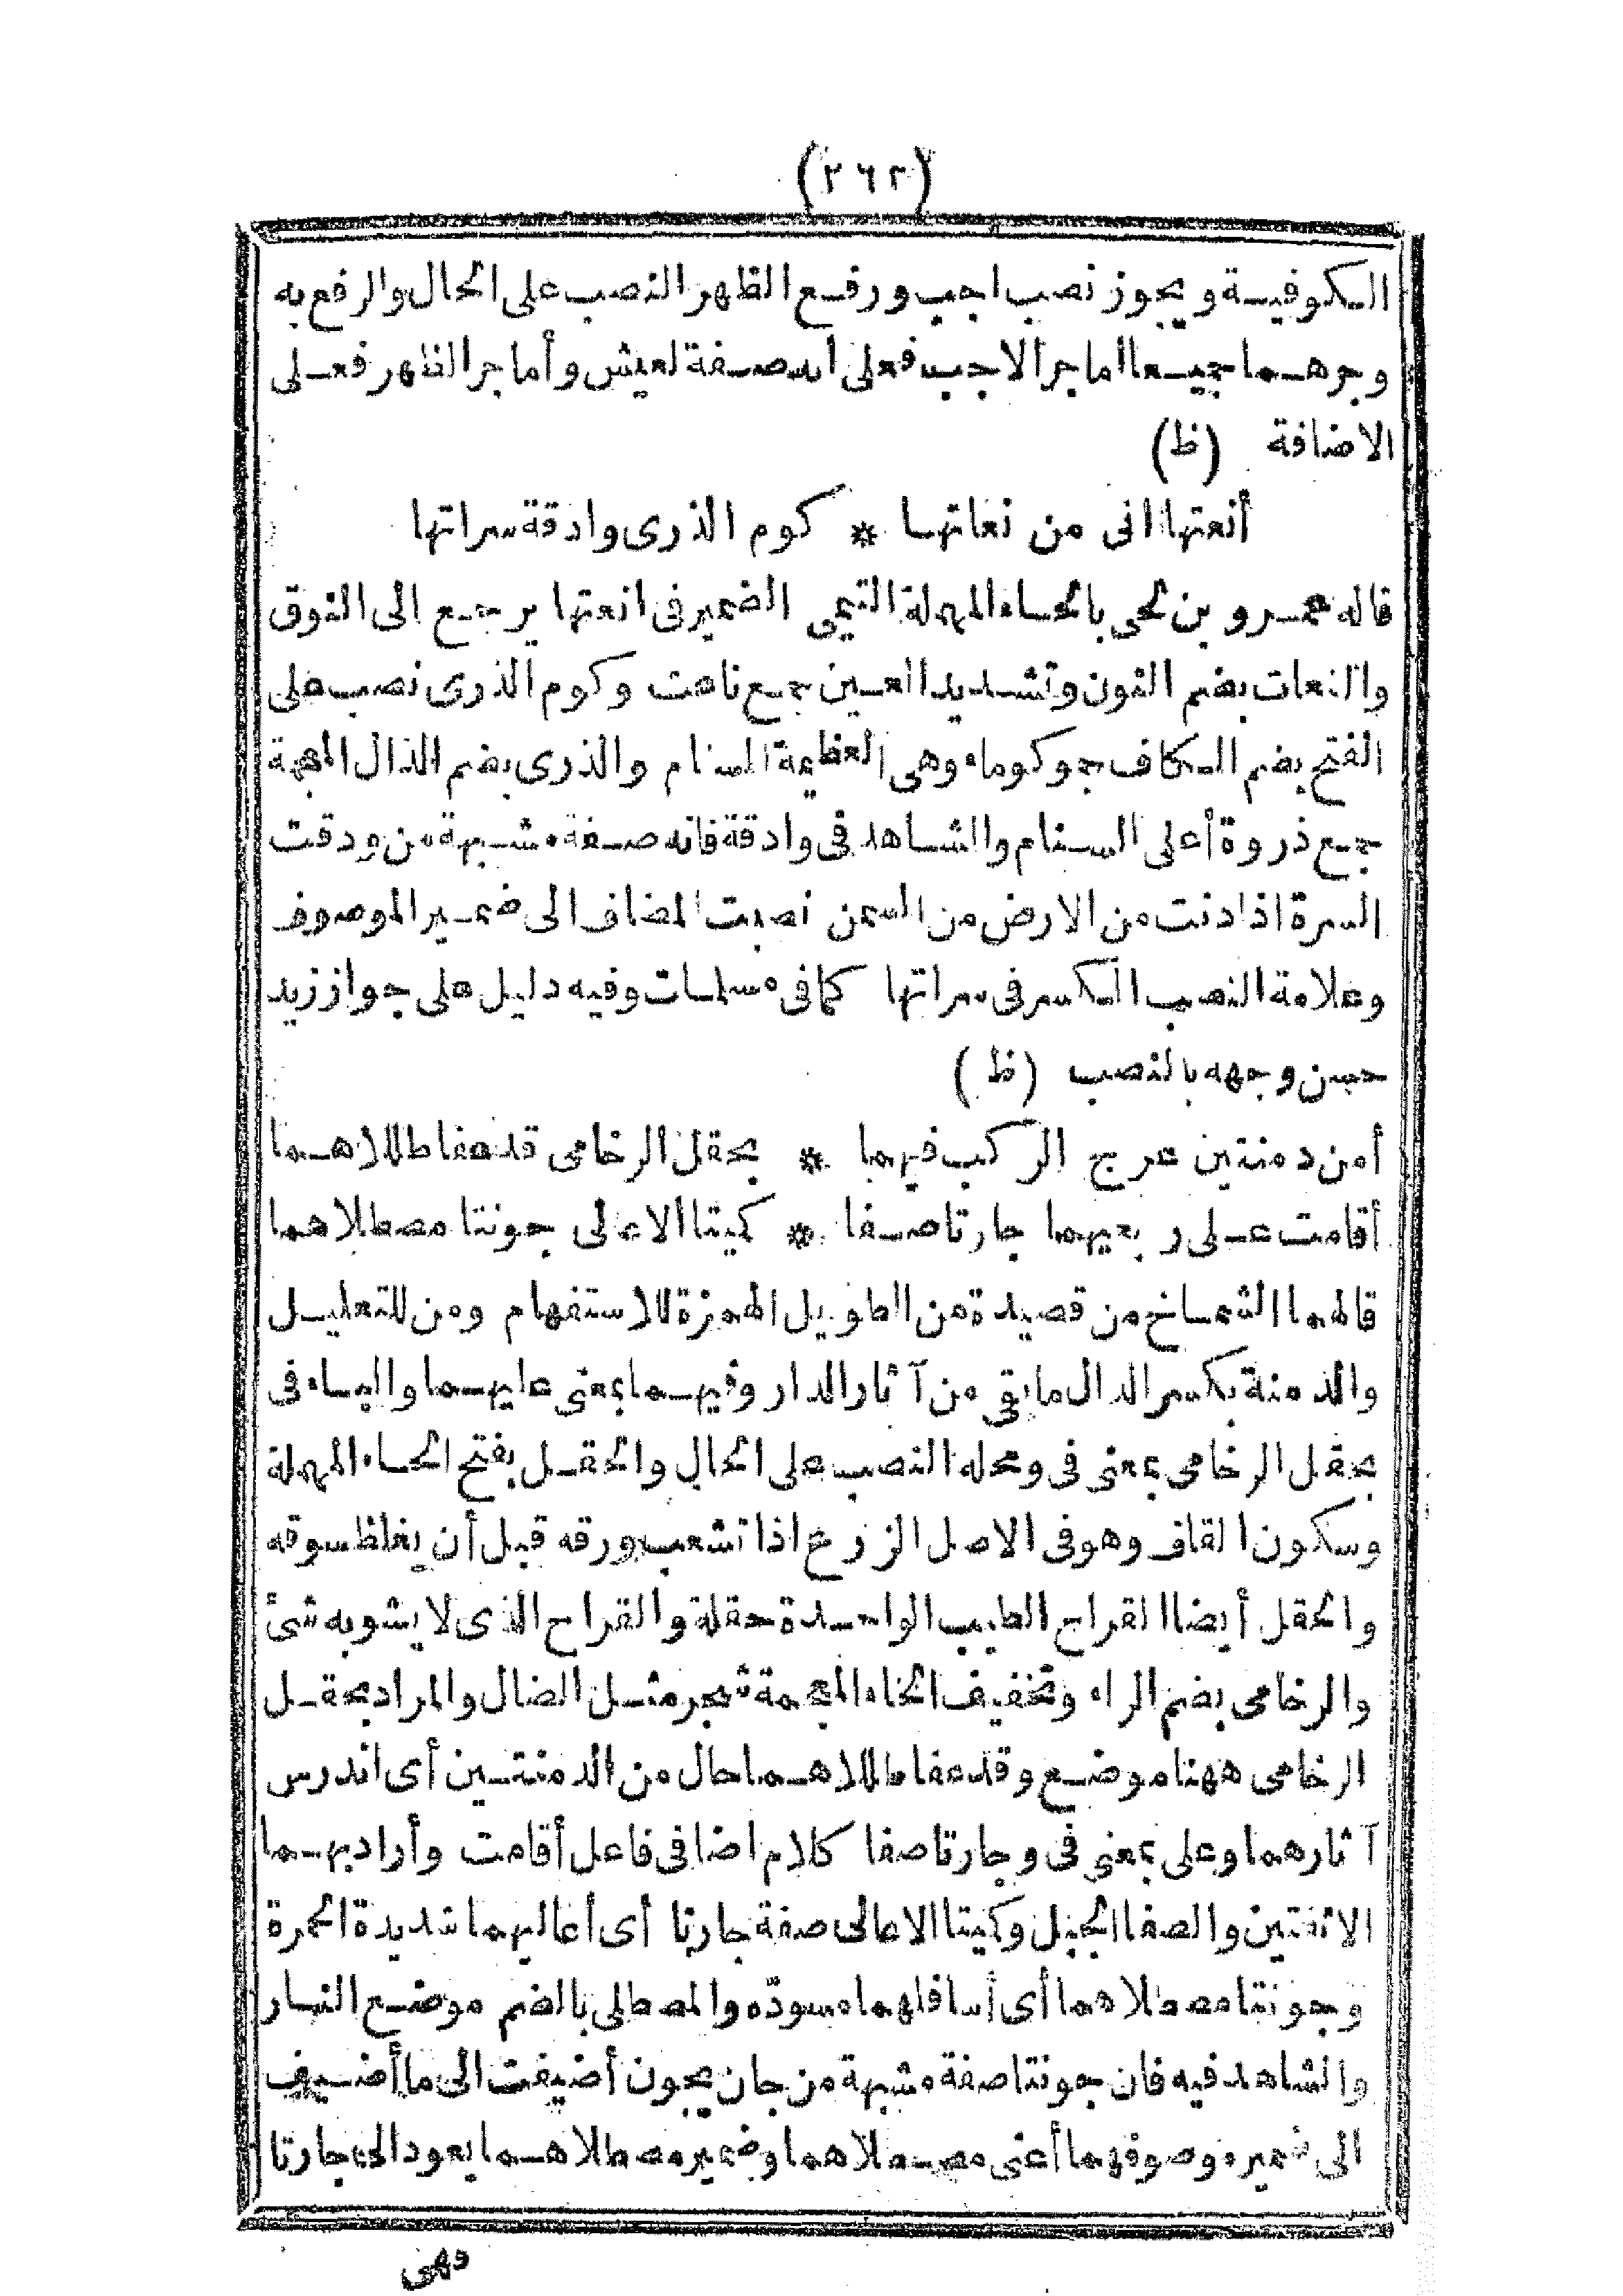 (٢٦٢)
الكوفية ويجوز نصب اجب ورفع الظهر النصب على الحال والرفع به
وجرهما جميعا أما جر الاجب فعلى انه صفة لعيش وأما جر الظهر فعلى
الاضافة (ظ)
أنعتها انى من نعاتها * كوم الذرى وادقة سراتها
قاله عمرو بن لحى بالحاء المهملة التيمى الضمير فى انعتها يرجع الى النوق
والنعات بضم النون وتشديد العين جمع ناعت وكوم الذرى نصب على
الفتح بضم الكاف جمع كوماء وهى العظيمة السنام والذرى بضم الذال المعجمة
جمع ذروة أعلى السنام والشاهد فى وادقة فانه صفة مشبهة من ودقت
السرة اذا دنت من الارض من السمن نصبت المضاف الى ضمير الموصوف
وعلامة النصب الكسر فى سراتها كما فى مسلمات وفيه دليل على جواز زيد
حسن وجهه بالنصب (ظ)
أمن دمنتين عرج الركب فيهما * بحقل الرخامى قد عفا طللاهما
أقامت على ربعيهما جارتا صفا * كميتا الاعالى جونتا مصطلاهما
قالهما الشماخ من قصيدة من الطويل الهمزة للاستفهام ومن للتعليل
والدمنة بكسر الدال ما بقى من آثار الدار وفيهما بمعنى عليهما والباء فى
بحقل الرخامى بمعنى فى ومحله النصب على الحال والحقل بفتح الحاء المهملة
وسكون القاف وهو فى الاصل الزرع اذا تشعب ورقه قبل أن يغلظ سوقه
والحقل أيضا القراح الطيب الواحدة حقلة والقراح الذى لا يشوبه شئ
والرخامى بضم الراء وتخفيف الخاء المعجمة شجر مثل الضال والمراد بحقل
الرخامى ههنا موضع وقد عفا طللاهما حال من الدمنتين أى اندرس
آثارهما وعلى بمعنى فى وجارتا صفا كلام اضافى فاعل أقامت وأراد بهما
الاثفتين والصفا الجبل وكميتا الاعالى صفة جارتا أى أعاليهما شديدة الحمرة
وجونتا مصطلاهما أى أسافلهما مسودّه والمصطلى بالضم موضع النار
والشاهد فيه فان جونتا صفة مشبهة من جان يجون أضيفت الى ما أضيف
الى ضمير موصوفهما أعنى مصطلاهما وضمير مصطلاهما يعود الى جارتا
وهى